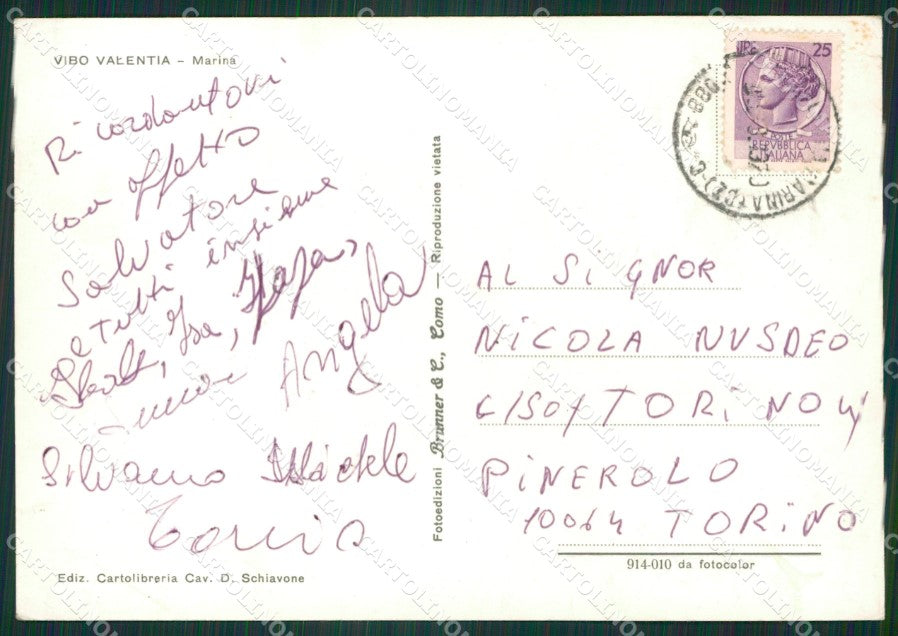 VIBO VALENTIA - Marina
Ricordantovi
con affetto
Salvatore
e tutti insieme
Isa,
Angela
Silvano Michele
Ediz. Cartolibreria Cav. D. Schiavone
Fotoedizioni Brunner & C., Como — Riproduzione vietata
LIRE 25
POSTE
REPVBBLICA
ITALIANA
MARINA (CZ)
AL SIGNOR
NICOLA NUSDEO
C/SO TORINO
PINEROLO
10064 TORINO
914-010 da fotocolor
CARTOLINOMANIA